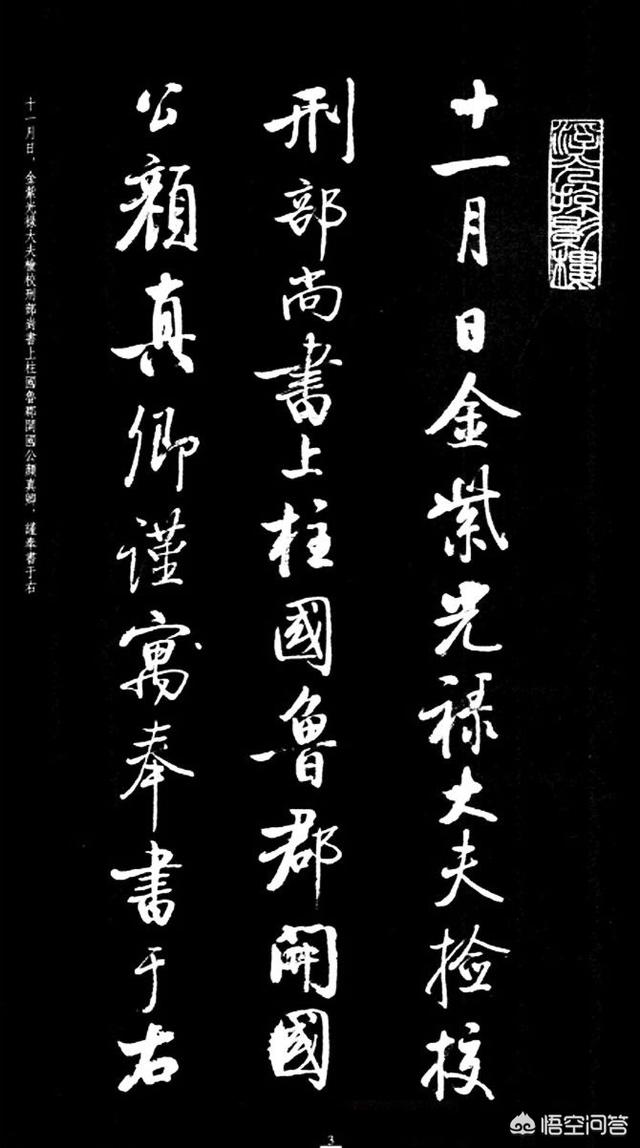 浮光掠影樓
十一月日金紫光禄大夫捡挍
刑部尚書上柱國魯郡開國
公顔真卿謹寓奉書于右
十一月日，金紫光禄大夫檢校刑部尚書上柱國魯郡開國公顔真卿，謹奉書于右
3
悟空问答